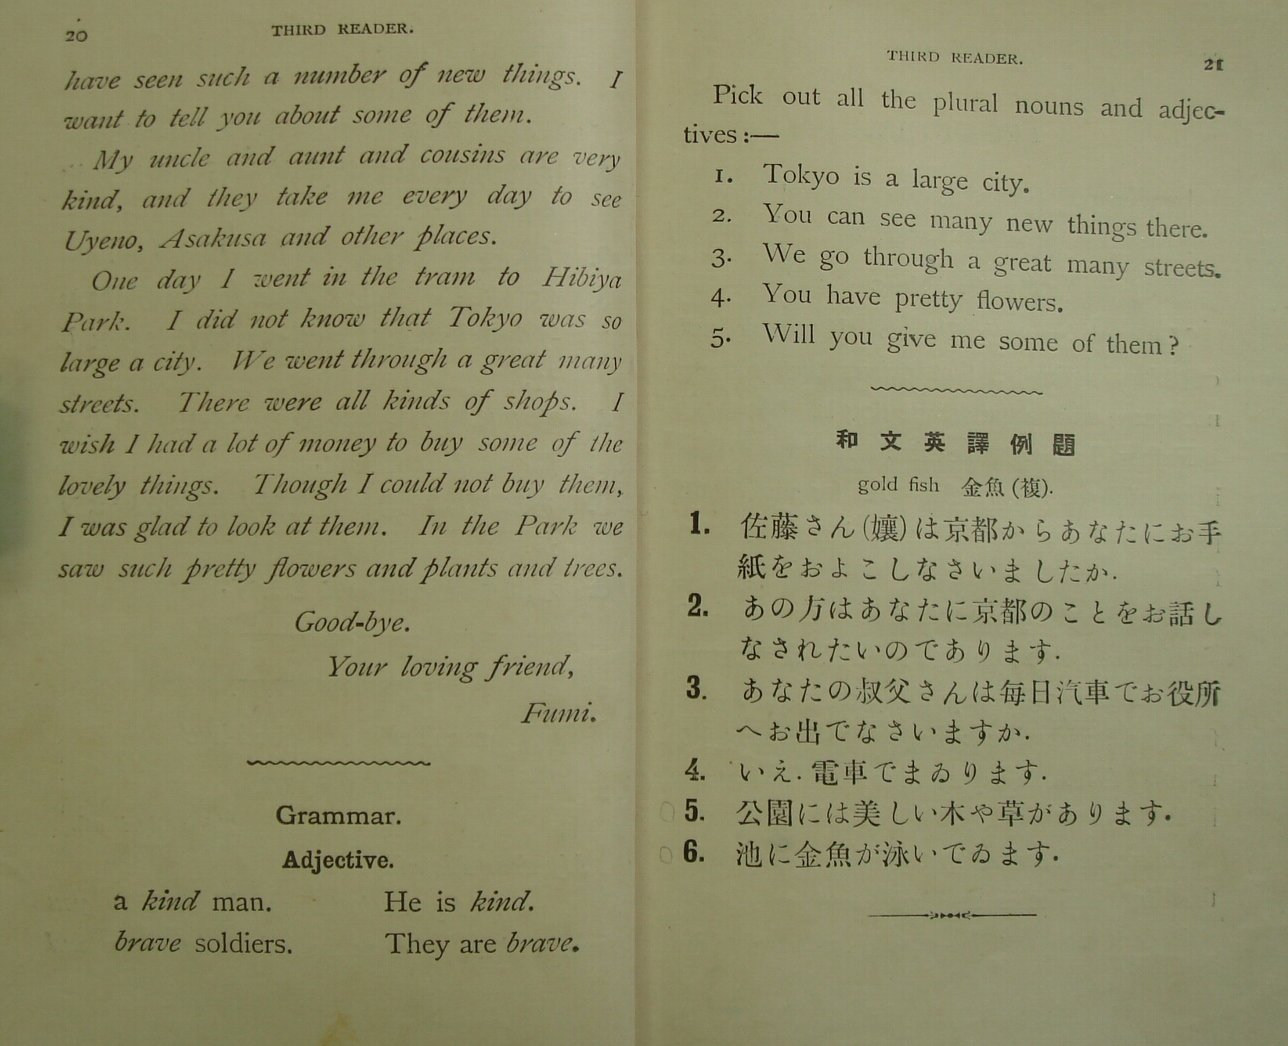 20
THIRD READER.
have seen such a number of new things. I
want to tell you about some of them.
My uncle and aunt and cousins are very
kind, and they take me every day to see
Uyeno, Asakusa and other places.
One day I went in the tram to Hibiya
Park. I did not know that Tokyo was so
large a city. We went through a great many
streets. There were all kinds of shops. I
wish I had a lot of money to buy some of the
lovely things. Though I could not buy them,
I was glad to look at them. In the Park we
saw such pretty flowers and plants and trees.
Good-bye.
Your loving friend,
Fumi.
Grammar.
Adjective.
a kind man. He is kind.
brave soldiers. They are brave.
THIRD READER.
21
Pick out all the plural nouns and adjec-
tives :—
1. Tokyo is a large city.
2. You can see many new things there.
3. We go through a great many streets.
4. You have pretty flowers.
5. Will you give me some of them ?
和文英譯例題
gold fish 金魚 (複).
1. 佐藤さん(孃)は京都からあなたにお手
紙をおよこしなさいましたか.
2. あの方はあなたに京都のことをお話し
なされたいのであります.
3. あなたの叔父さんは每日汽車でお役所
へお出でなさいますか.
4. いえ. 電車でまゐります.
5. 公園には美しい木や草があります.
6. 池に金魚が泳いでゐます.